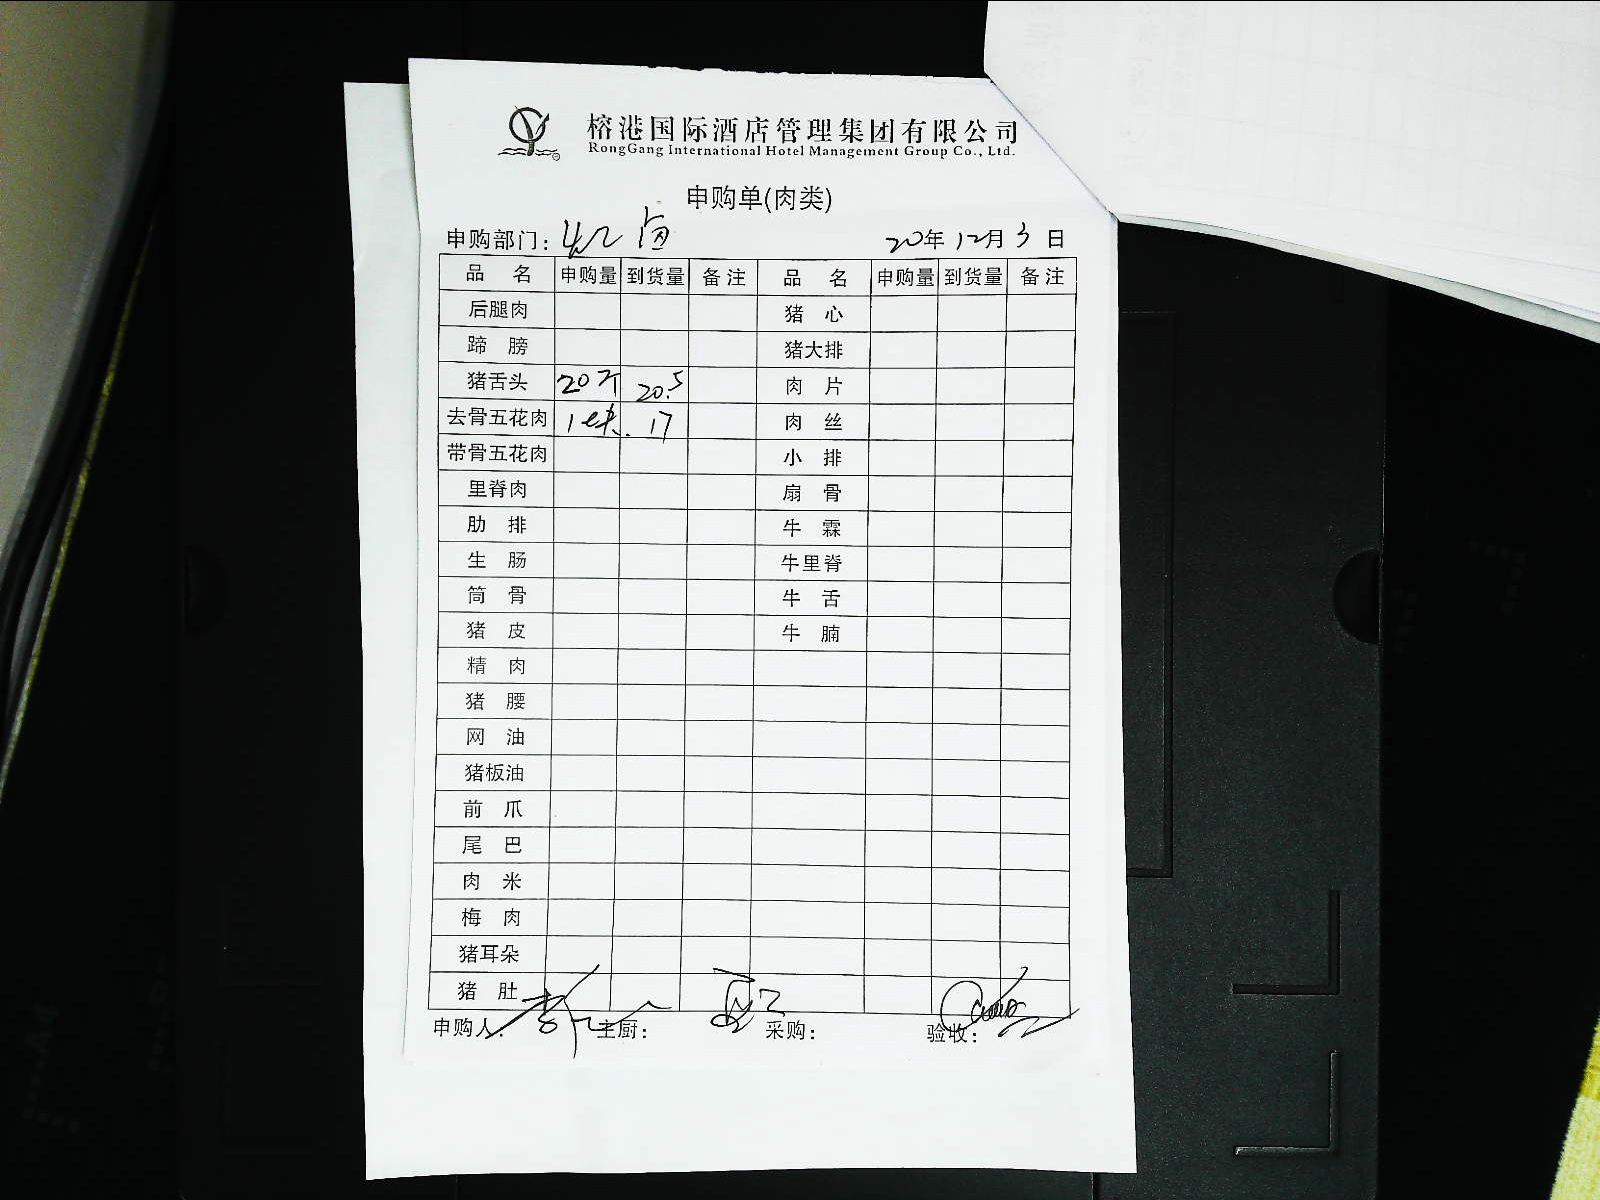 榕港国际酒店管理集团有限公司
RongGang International Hotel Management Group Co., Ltd.
申购单(肉类)
申购部门：
20年12月3日
品 名 申购量 到货量 备注 品 名 申购量 到货量 备注
后腿肉 猪 心
蹄 膀 猪大排
猪舌头 20个 20.5 肉 片
去骨五花肉 1块. 17 肉 丝
带骨五花肉 小 排
里脊肉 扇 骨
肋 排 牛 霖
生 肠 牛里脊
筒 骨 牛 舌
猪 皮 牛 腩
精 肉
猪 腰
网 油
猪板油
前 爪
尾 巴
肉 米
梅 肉
猪耳朵
猪 肚
申购人： 主厨： 采购： 验收：